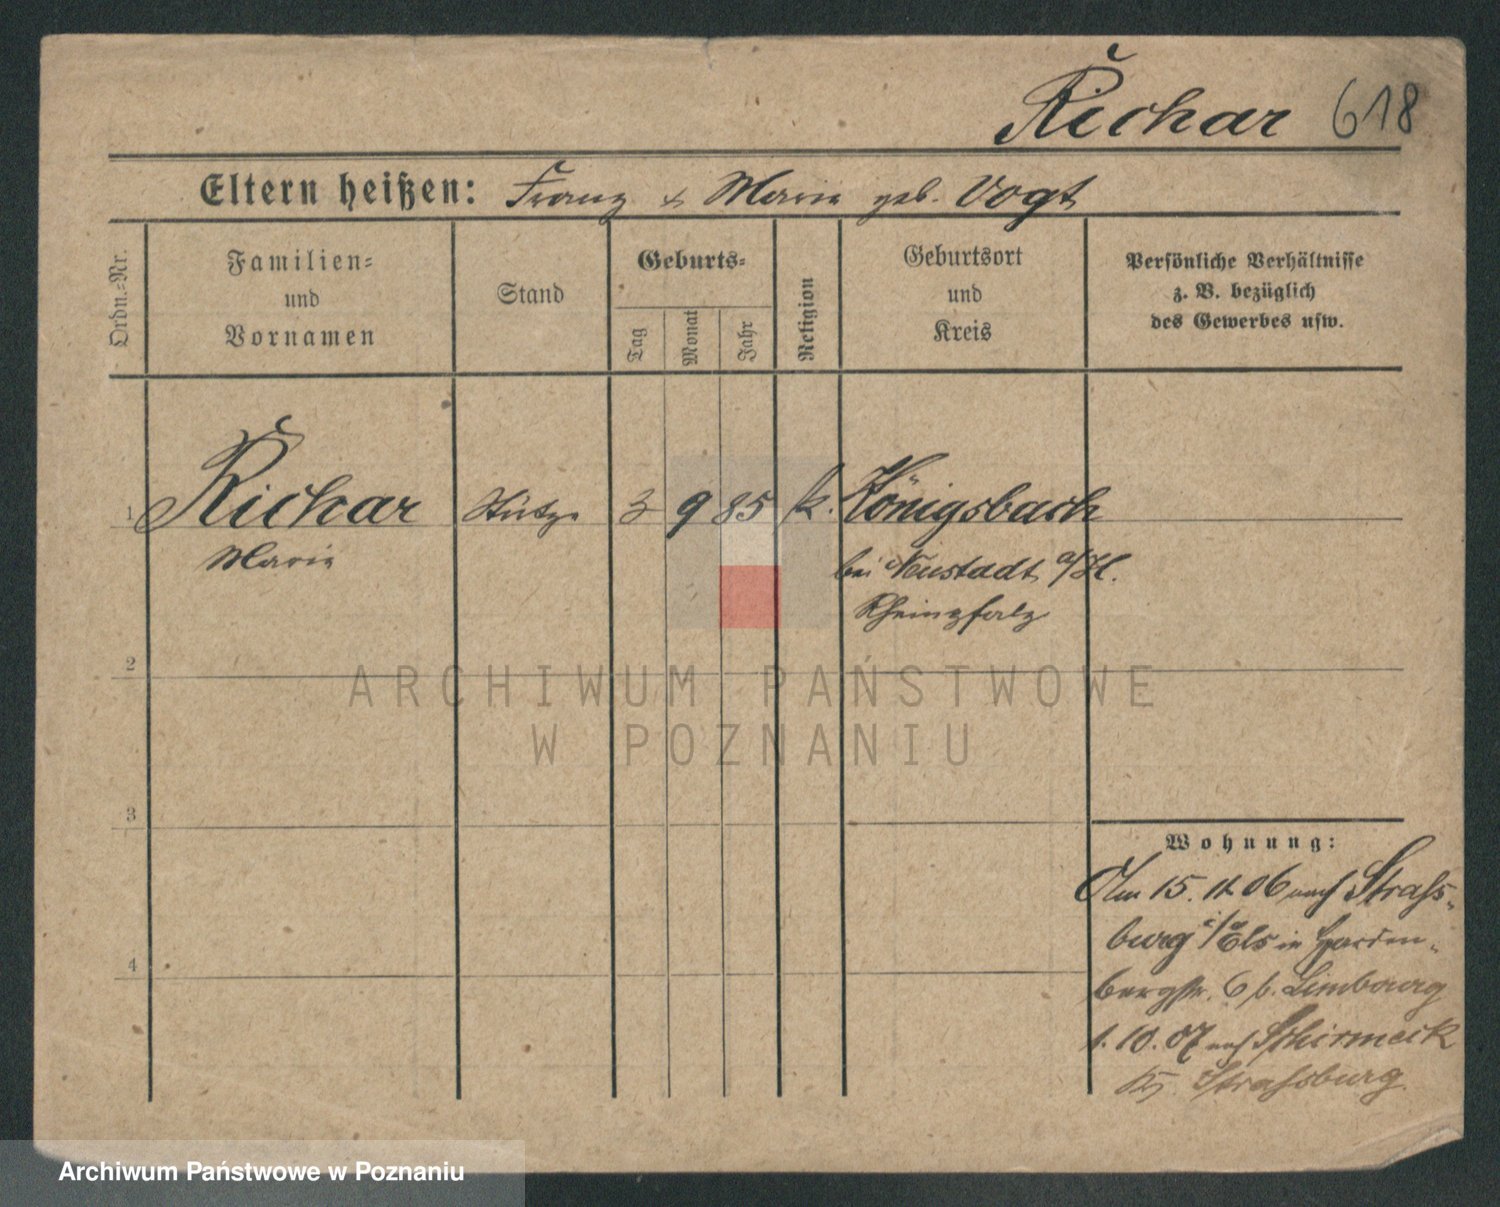 Richar 618
Eltern heißen: Franz & Marie geb. Vogt
Ordn.-Nr.
Familien-
und
Vornamen
Stand
Geburts-
Tag
Monat
Jahr
Religion
Geburtsort
und
Kreis
Persönliche Verhältnisse
z. B. bezüglich
des Gewerbes usw.
1 Richar Stütze 3 9 85 k. Königsbach
Marie bei Neustadt a/H.
Rheinpfalz
2
ARCHIWUM PAŃSTWOWE
W POZNANIU
3
Wohnung:
Am 15. 11. 06 nach Straß-
burg i/Els in Harden-
4
bergstr. 6 b. Limbourg
1. 10. 07 nach Schirmeck
Kr. Straßburg.
Archiwum Państwowe w Poznaniu